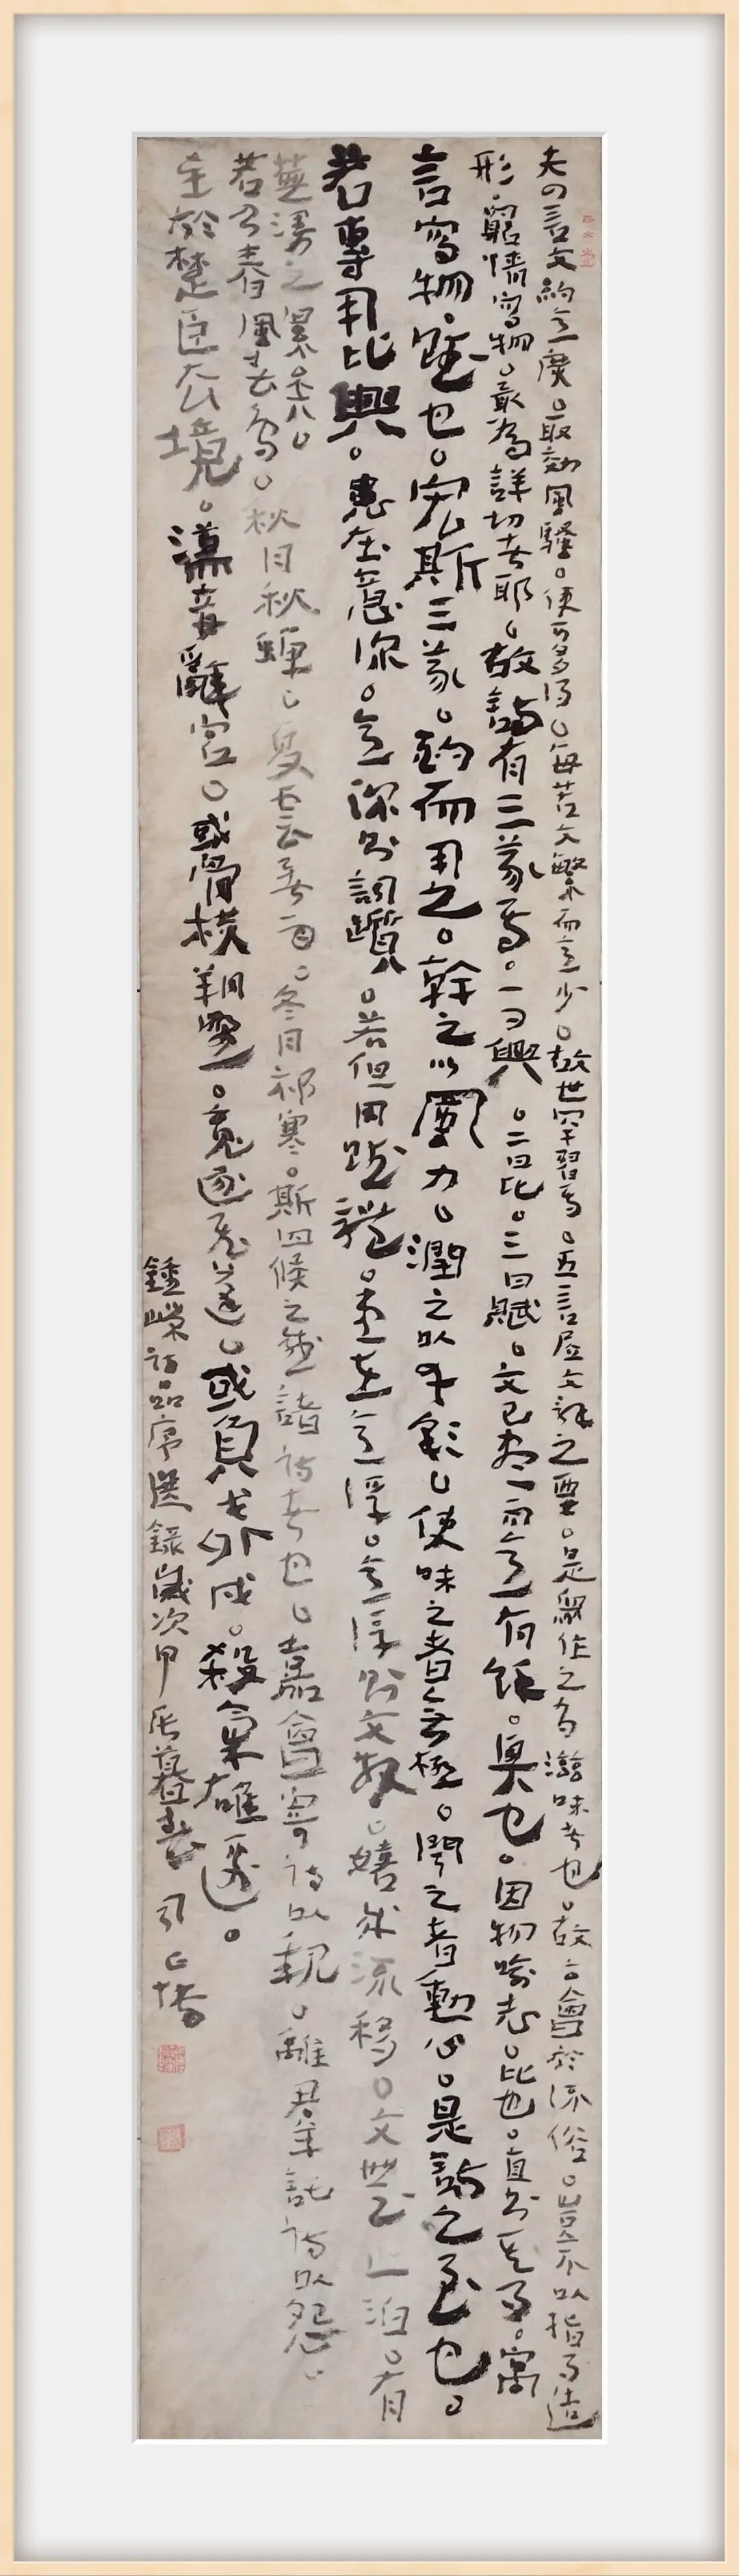 夫四言文約意廣。取效風騷。便可多得。每苦文繁而意少。故世罕習焉。五言居文詞之要。是眾作之有滋味者也。故云會於流俗。豈不以指事造
形。窮情寫物。最為詳切者耶。故詩有三義焉。一曰興。二曰比。三曰賦。文已盡而意有餘。興也。因物喻志。比也。直書其事。寓
言寫物。賦也。宏斯三義。酌而用之。幹之以風力。潤之以丹彩。使味之者無極。聞之者動心。是詩之至也。
若專用比興。患在意深。意深則詞躓。若但用賦體。患在意浮。意浮則文散。嬉成流移。文無止泊。有
蕪漫之累矣。
若乃春風春鳥。秋月秋蟬。夏雲暑雨。冬月祁寒。斯四候之感諸詩者也。嘉會寄詩以親。離群託詩以怨。
至於楚臣去境。漢妾辭宮。或骨橫朔野。魂逐飛蓬。或負戈外戍。殺氣雄邊。
鍾嶸詩品序選錄歲次甲辰暮春